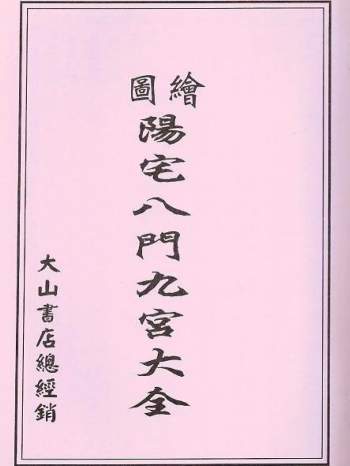 繪圖
陽宅八門九宮大全
大山書店總經銷